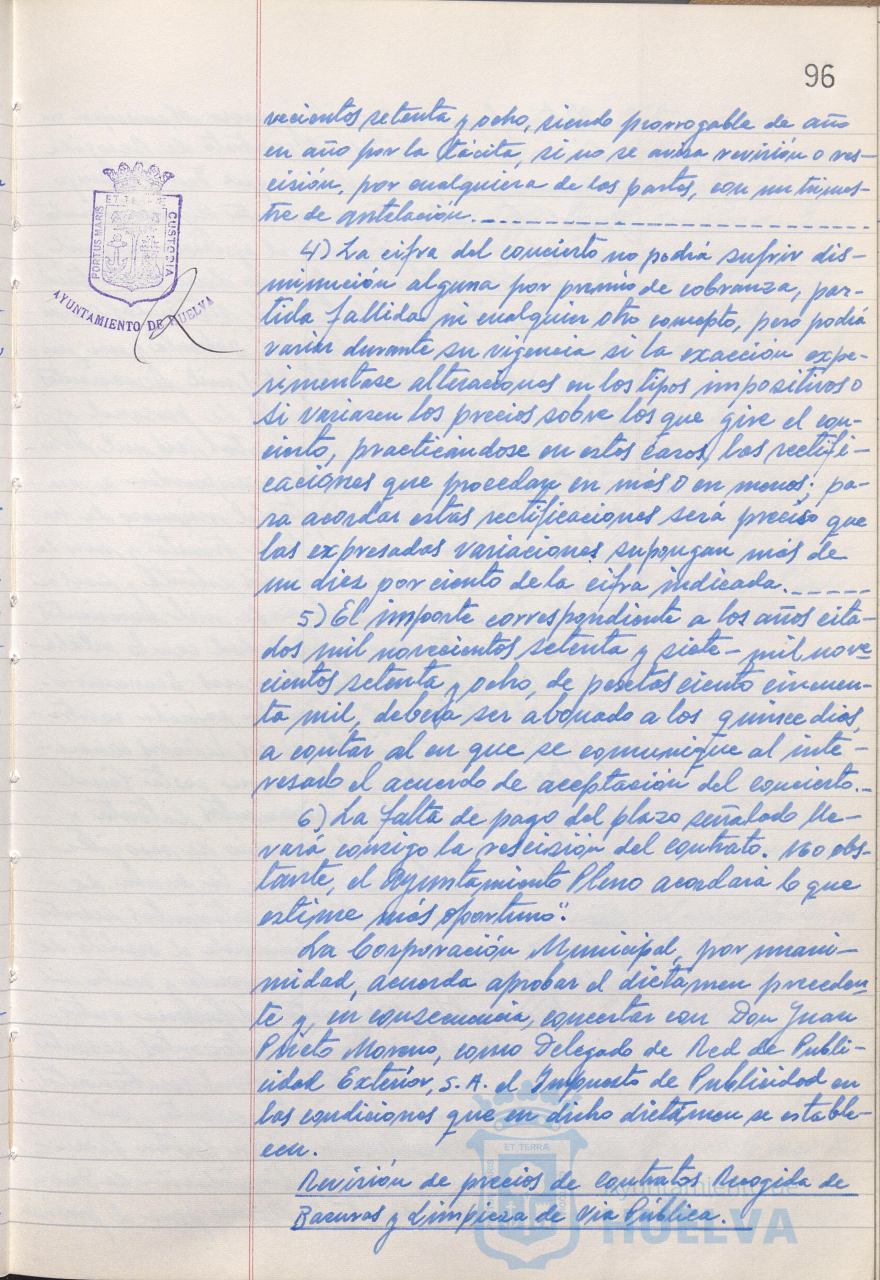 96
vecientos setenta y ocho, siendo prorrogable de año
en año por la tácita, si no se avisa revisión o res-
cisión, por cualquiera de las partes, con un trimes-
tre de antelación.
4) La cifra del concierto no podrá sufrir dis-
minución alguna por premio de cobranza, par-
tida fallida ni cualquier otro concepto, pero podrá
variar durante su vigencia si la exacción expe-
rimentase alteraciones en los tipos impositivos o
si variasen los precios sobre los que gire el con-
cierto, practicándose en estos casos, las rectifi-
caciones que procedan en más o en menos; pa-
ra acordar estas rectificaciones será preciso que
las expresadas variaciones supongan más de
un diez por ciento de la cifra indicada.
5) El importe correspondiente a los años cita-
dos mil novecientos setenta y siete - mil nove-
cientos setenta y ocho, de pesetas ciento cincuen-
ta mil, deberá ser abonado a los quince dias,
a contar al en que se comunique al inte-
resado el acuerdo de aceptación del concierto.
6) La falta de pago del plazo señalado lle-
vará consigo la rescisión del contrato. No obs-
tante, el Ayuntamiento Pleno acordará lo que
estime más oportuno".
La Corporación Municipal, por unani-
midad, acuerda aprobar el dictámen preceden-
te y, en consecuencia, concertar con Don Juan
Prieto Moreno, como Delegado de Red de Publi-
cidad Exterior, S.A. el Impuesto de Publicidad en
las condiciones que en dicho dictámen se estable-
cen.
Revisión de precios de contratos Recogida de
Basuras y Limpieza de Via Pública.
PORTUS MARIS
ET TERRÆ
CUSTODIA
AYUNTAMIENTO DE HUELVA
ET TERRÆ
Ayuntamiento de
HUELVA